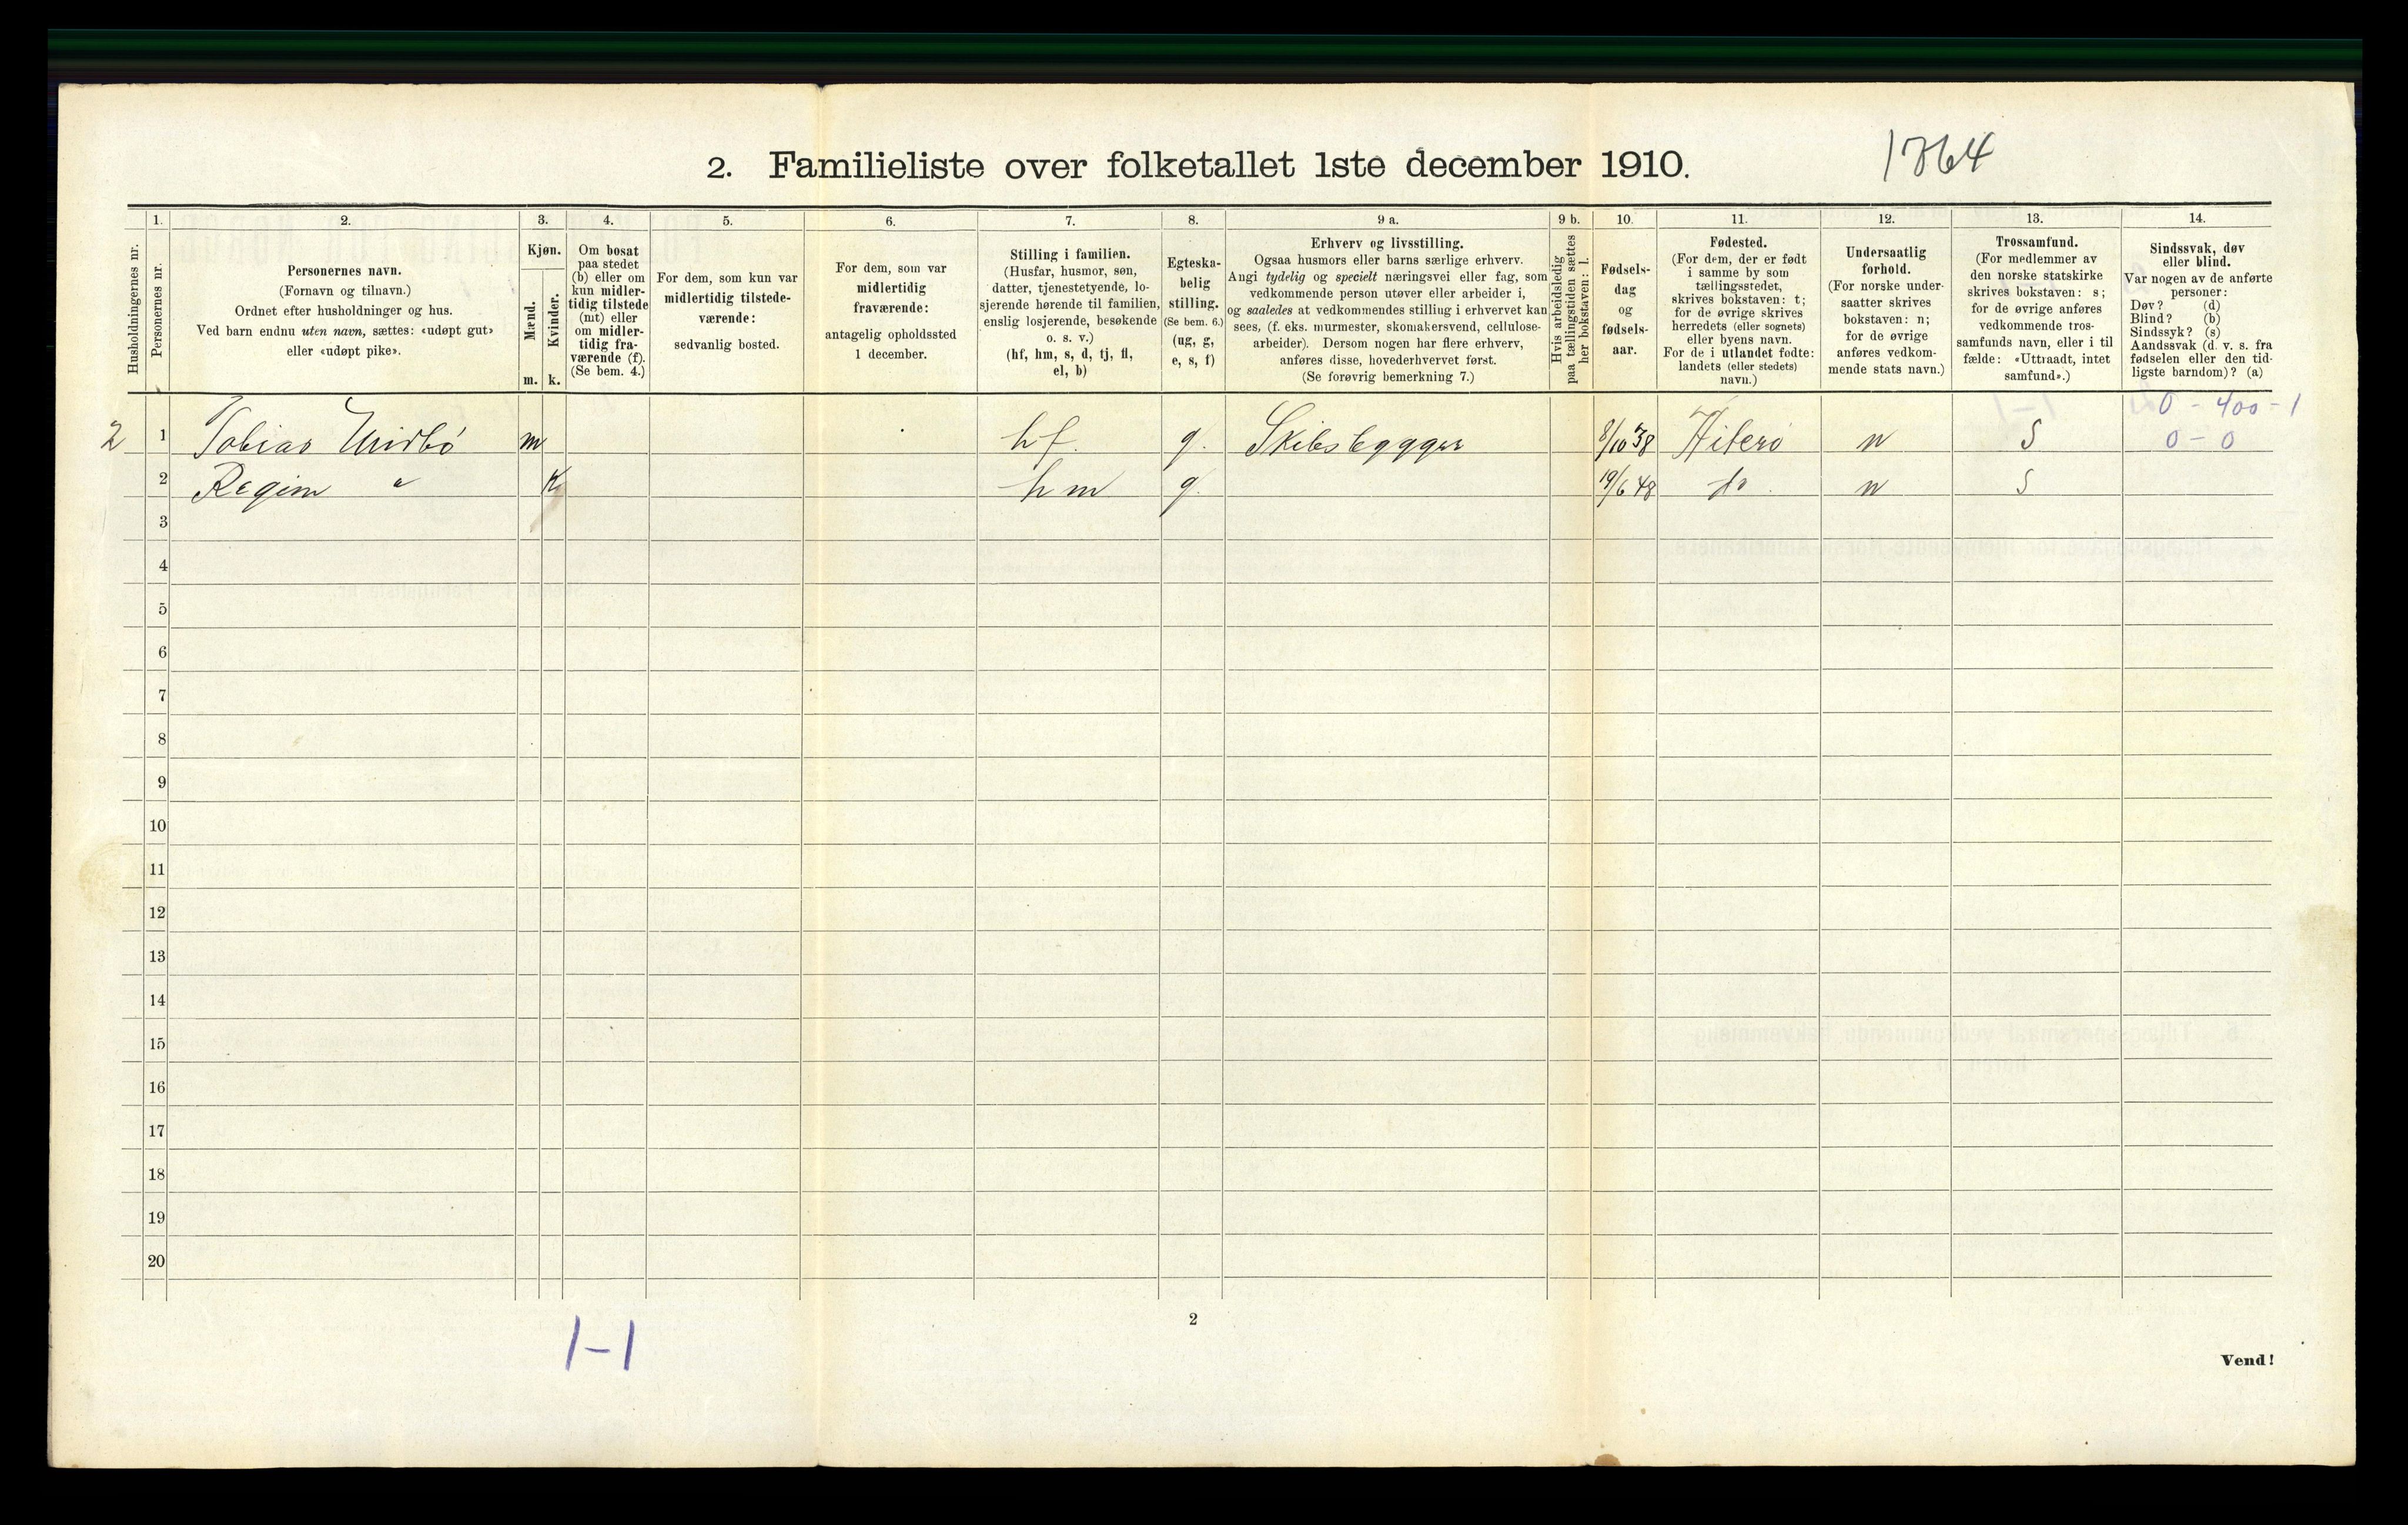 2. Familieliste over folketallet 1ste december 1910.
1864
1. 2. 3. 4. 5. 6. 7. 8. 9 a. 9 b. 10. 11. 12. 13. 14.
Husholdningernes nr.
Personernes nr.
Personernes navn.
(Fornavn og tilnavn.)
Ordnet efter husholdninger og hus.
Ved barn endnu uten navn, sættes: «udøpt gut»
eller «udøpt pike».
Kjøn.
Mænd.
Kvinder.
m. k.
Om bosat
paa stedet
(b) eller om
kun midler-
tidig tilstede
(mt) eller
om midler-
tidig fra-
værende (f).
(Se bem. 4.)
For dem, som kun var
midlertidig tilstede-
værende:
sedvanlig bosted.
For dem, som var
midlertidig
fraværende:
antagelig opholdssted
1 december.
Stilling i familien.
(Husfar, husmor, søn,
datter, tjenestetyende, lo-
sjerende hørende til familien,
enslig losjerende, besøkende
o. s. v.)
(hf, hm, s, d, tj, fl,
el, b)
Egteska-
belig
stilling.
(Se bem. 6.)
(ug, g,
e, s, f)
Erhverv og livsstilling.
Ogsaa husmors eller barns særlige erhverv.
Angi tydelig og specielt næringsvei eller fag, som
vedkommende person utøver eller arbeider i,
og saaledes at vedkommendes stilling i erhvervet kan
sees, (f. eks. murmester, skomakersvend, cellulose-
arbeider). Dersom nogen har flere erhverv,
anføres disse, hovederhvervet først.
(Se forøvrig bemerkning 7.)
Hvis arbeidsledig
paa tællingstiden sættes
her bokstaven: l.
Fødsels-
dag
og
fødsels-
aar.
Fødested.
(For dem, der er født
i samme by som
tællingsstedet,
skrives bokstaven: t;
for de øvrige skrives
herredets (eller sognets)
eller byens navn.
For de i utlandet fødte:
landets (eller stedets)
navn.)
Undersaatlig
forhold.
(For norske under-
saatter skrives
bokstaven: n;
for de øvrige
anføres vedkom-
mende stats navn.)
Trossamfund.
(For medlemmer av
den norske statskirke
skrives bokstaven: s;
for de øvrige anføres
vedkommende tros-
samfunds navn, eller i til
fælde: «Uttraadt, intet
samfund».)
Sindssvak, døv
eller blind.
Var nogen av de anførte
personer:
Døv? (d)
Blind? (b)
Sindssyk? (s)
Aandssvak (d. v. s. fra
fødselen eller den tid-
ligste barndom)? (a)
0 - 400 - 1
2 1 Tobias m hf. g. Skibsbyggger 8/10 38 Hiterø n S 0 - 0
2 Regine " k hm g 19/6 48 do. n S
3
4
5
6
7
8
9
10
11
12
13
14
15
16
17
18
19
20
1-1
2
Vend!